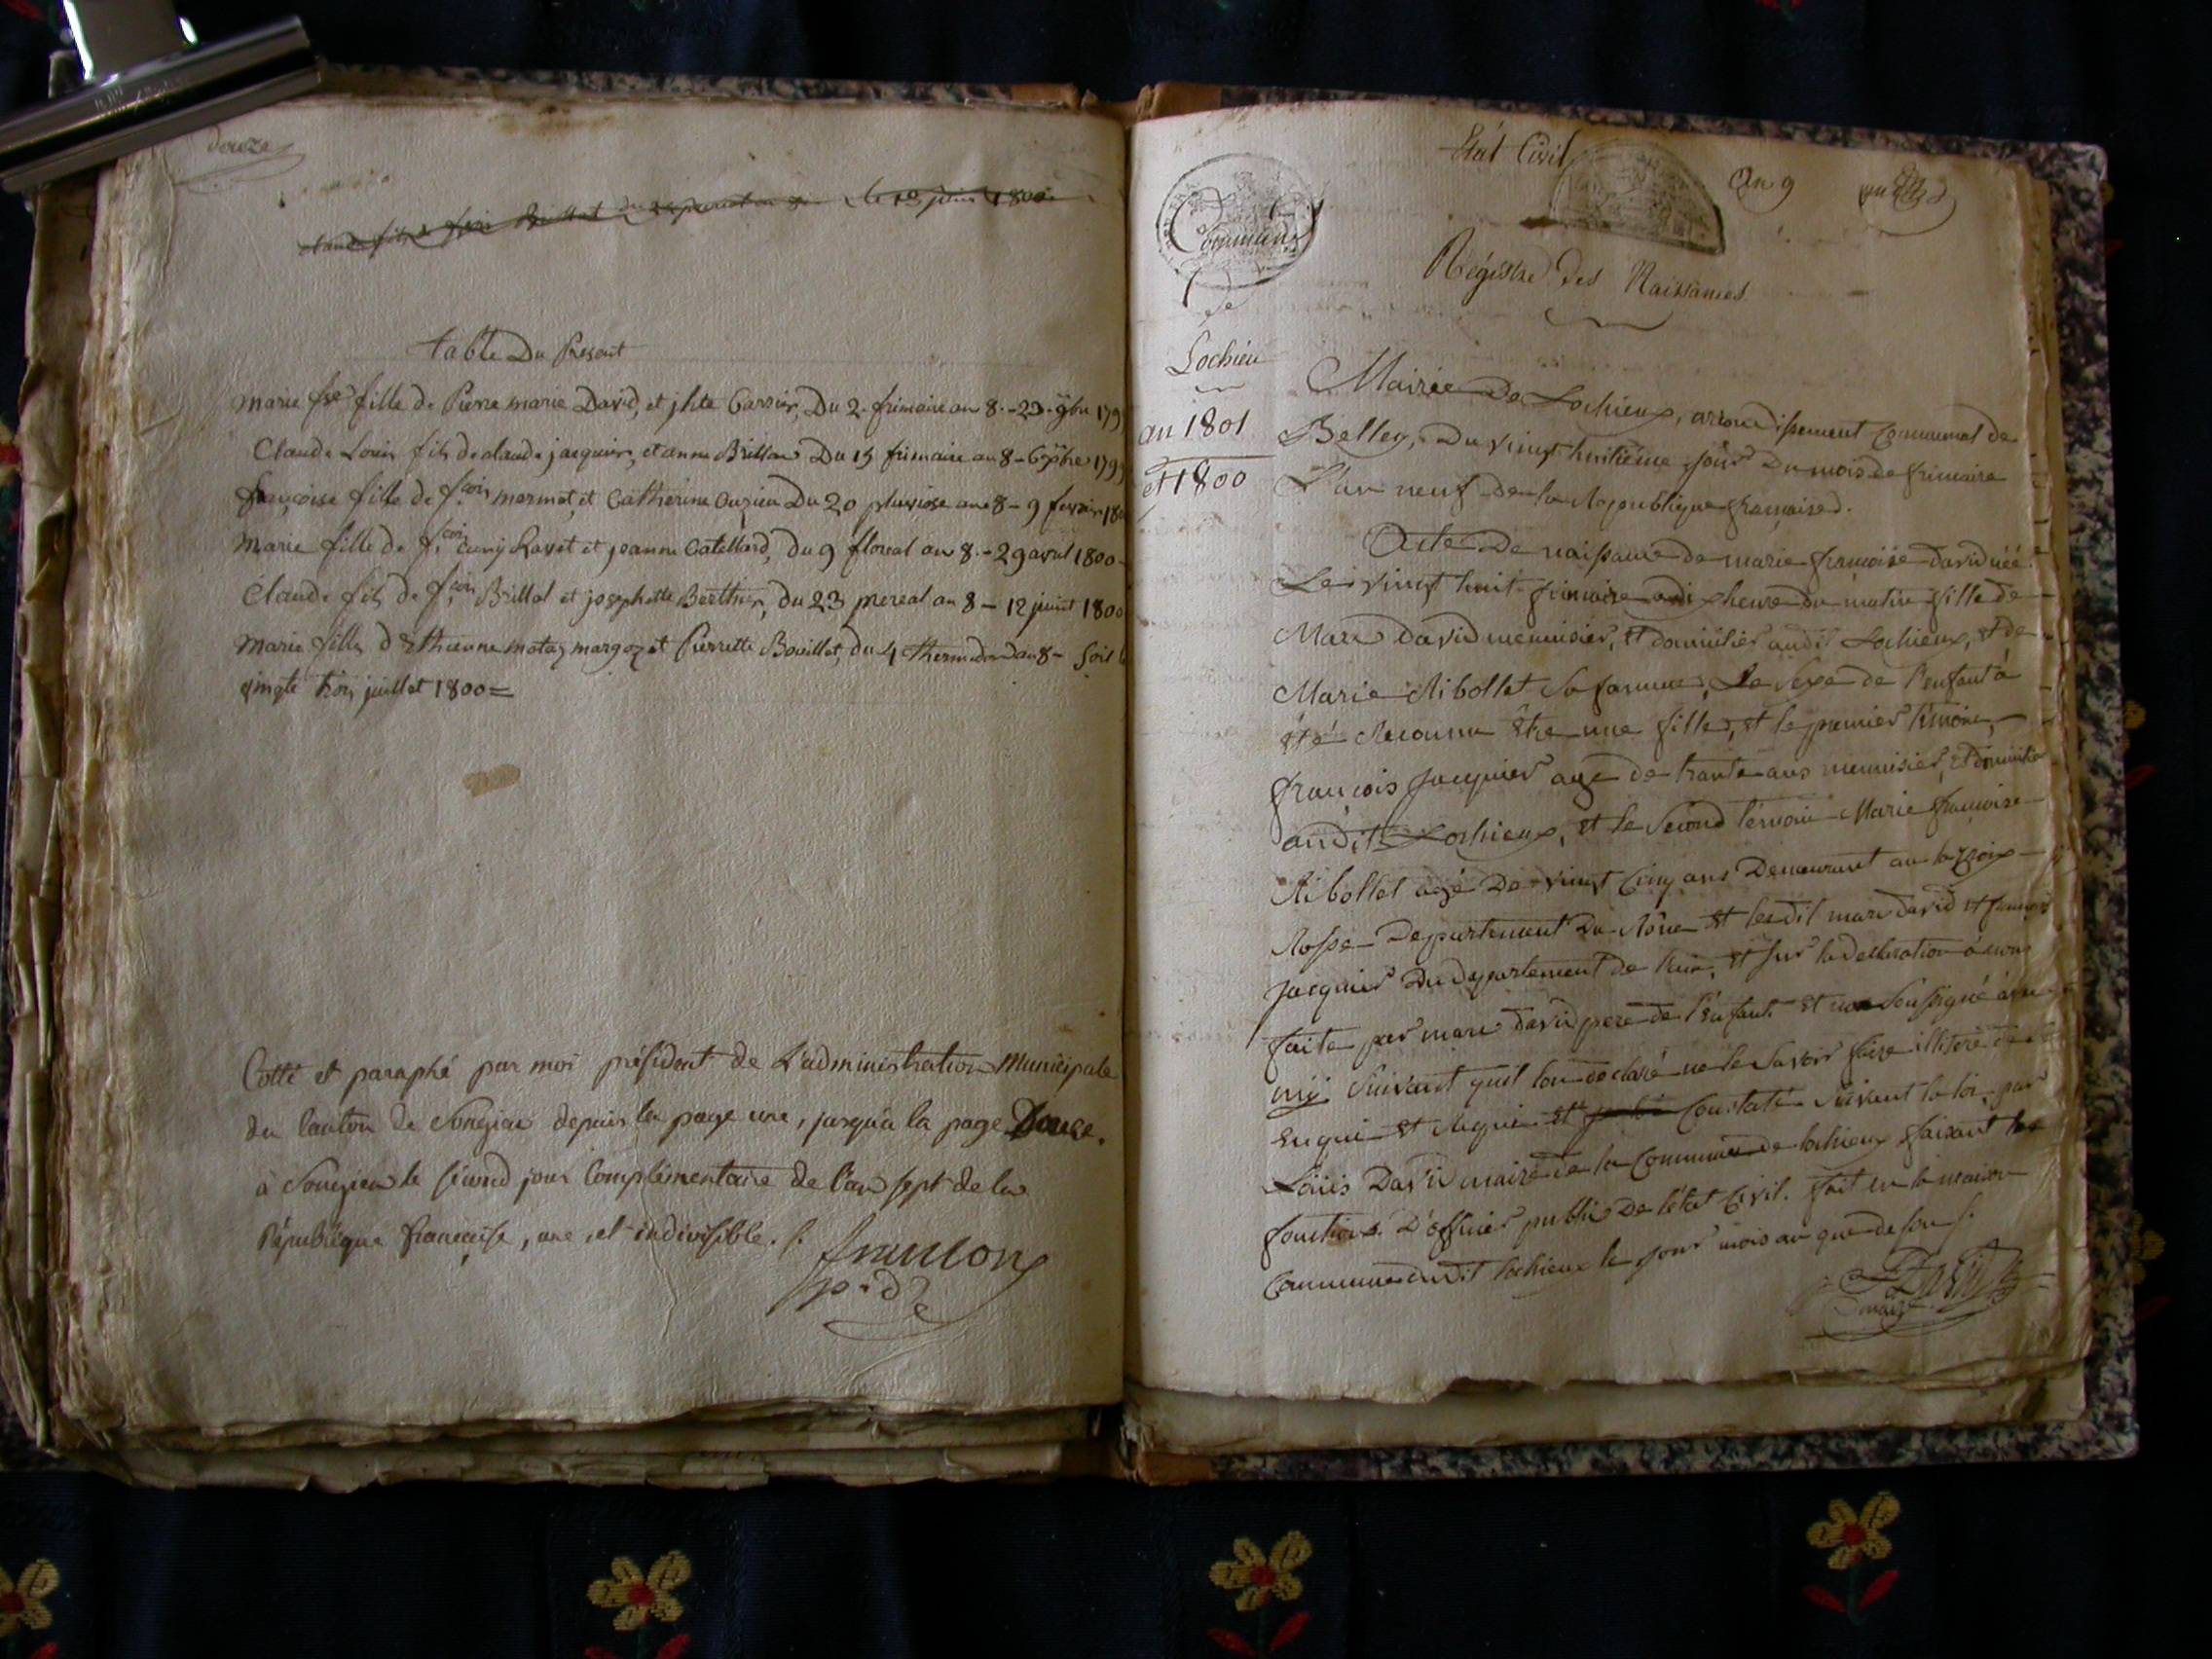 douze
claude fils de fcois Brillat du 23 prereal an 8 le 12 juin 1800
table Du Present
Marie fse fille de Pierre marie David, et jhte Carrier, Du 2. frimaire an 8.-23. 9bre 179
Claude Louis fils de claude jacquier, et anne Brillat Du 15 frimaire an 8 - 6 Xbre 1799
françoise fille de fcois mermet, et Catherine Du 20 pluviose an 8 - 9 fevrier 180
Marie fille de fcois Cuny Ravet et jeanne Catelland, du 9 floreal an 8.-29 avril 1800
Claude fils de fcois Brillat et josephette Berthier, du 23 prereal an 8 - 12 juint 1800
Marie fille d'Ethienne motaz margoz et Pierrette Bouillet, du 4 thermidor an 8 - Soit le
vingte trois juillet 1800=
Cotté et paraphé par moi président de L'administration Municipale
du Canton de Songieu depuis la page une, jusqu'a la page Douze.
à Songieu le second jour Complémentaire de l'an sept de la
République française, une, et indivisible./.
francon
p.dt
Etat Civil
An 9
Commune
de
Lochieu
an 1801
et 1800
Régistre des Naissances
Mairie de Lochieux, arrondissement Communal de
Belley, Du vingt huitième jour Du mois de frimaire
L'an neuf de la Republique française.
Acte De naissance de marie françoise david née
Le vingt huit frimaire a dix heure du matin fille de
Marc David menuisier, et domicilier audit Lochieux, et de
Marie Ribollet sa famme, Le sexe de l'enfant à
été Reconnu être une fille, et le premier témoin,
françois Jacquier agé de trante ans menuisier, et domicilié
audit Lochieux, et le second témoin Marie françoise
Ribollet agé De vingt Cinq ans Demeurant au la Croix
Rosse Departement Du Rône et les dit marc david et françois
Jacquier Du departement de l'ain, et sur la declaration à nous
faite par marc david pere de l'enfant et non soussigné
suivant quil lon declaré ne le savoir faire illitéré de
enquis et Requis et Constaté suivant la loi, par
Louis David maire de la Commune de lochieux faisant les
fonctions D'officier public De l'état Civil. fait en la maison
Commune dudit lochieux le jour mois an que dessus /.
David
maire